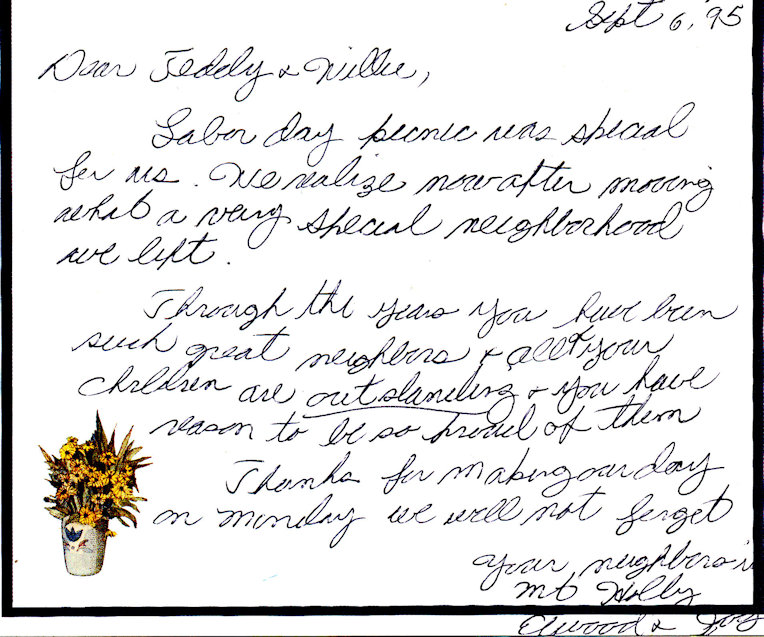 Sept 6, 95
Dear Teddy & Willie,
Labor day picnic was special
for us. We realize now after moving
what a very special neighborhood
we left.
Through the years you have been
such great neighbors & all of your
children are outstanding & you have
reason to be so proud of them
Thanks for making our day
on Monday we will not forget
Your neighbors in
Mt Holly
Elwood &